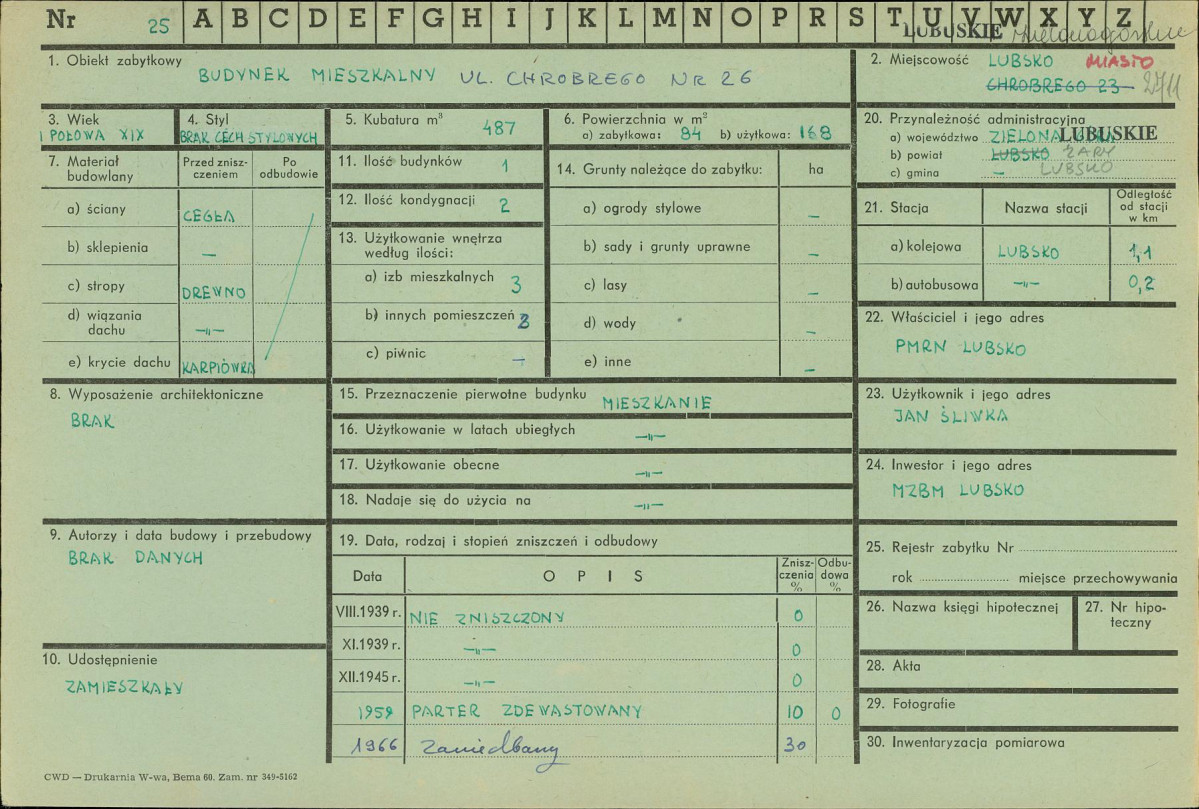 Nr 25 A B C D E F G H I J K L M N O P R S T U V W X Y Z
LUBUSKIE
1. Obiekt zabytkowy
BUDYNEK MIESZKALNY UL. CHROBREGO NR 26
2. Miejscowość LUBSKO MIASTO
CHROBREGO 23 2711
3. Wiek
I POŁOWA XIX
4. Styl
BRAK CECH STYLOWYCH
5. Kubatura m³ 487
6. Powierzchnia w m²
a) zabytkowa: 84 b) użytkowa: 168
20. Przynależność administracyjna
a) województwo ZIELONA GÓRA LUBUSKIE
b) powiat LUBSKO ŻARY
c) gmina — LUBSKO
7. Materiał budowlany
Przed zniszczeniem
Po odbudowie
a) ściany CEGŁA
b) sklepienia —
c) stropy DREWNO
d) wiązania dachu —„—
e) krycie dachu KARPIÓWKA
11. Ilość budynków 1
12. Ilość kondygnacji 2
13. Użytkowanie wnętrza
według ilości:
a) izb mieszkalnych 3
b) innych pomieszczeń 3
c) piwnic —
14. Grunty należące do zabytku: ha
a) ogrody stylowe —
b) sady i grunty uprawne —
c) lasy —
d) wody —
e) inne —
21. Stacja
Nazwa stacji
Odległość od stacji w km
a) kolejowa LUBSKO 1,1
b) autobusowa —„— 0,2
22. Właściciel i jego adres
PMRN LUBSKO
8. Wyposażenie architektoniczne
BRAK
15. Przeznaczenie pierwotne budynku MIESZKANIE
16. Użytkowanie w latach ubiegłych —„—
17. Użytkowanie obecne —„—
18. Nadaje się do użycia na —„—
23. Użytkownik i jego adres
JAN ŚLIWKA
24. Inwestor i jego adres
MZBM LUBSKO
9. Autorzy i data budowy i przebudowy
BRAK DANYCH
19. Data, rodzaj i stopień zniszczeń i odbudowy
Data
O P I S
Zniszczenia %
Odbudowa %
VIII.1939 r. NIE ZNISZCZONY 0
XI.1939 r. —„— 0
XII.1945 r. —„— 0
1959 PARTER ZDEWASTOWANY 10 0
1966 Zaniedbany 30
25. Rejestr zabytku Nr
rok miejsce przechowywania
26. Nazwa księgi hipotecznej
27. Nr hipoteczny
10. Udostępnienie
ZAMIESZKAŁY
28. Akta
29. Fotografie
30. Inwentaryzacja pomiarowa
CWD — Drukarnia W-wa, Bema 60. Zam. nr 349-5162